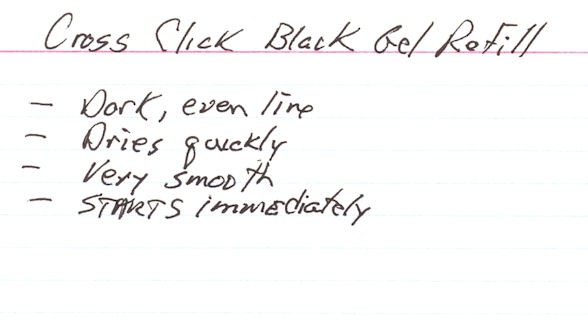 Cross Click Black Gel Refill
- Dark, even line
- Dries quickly
- Very smooth
- STARTS immediately